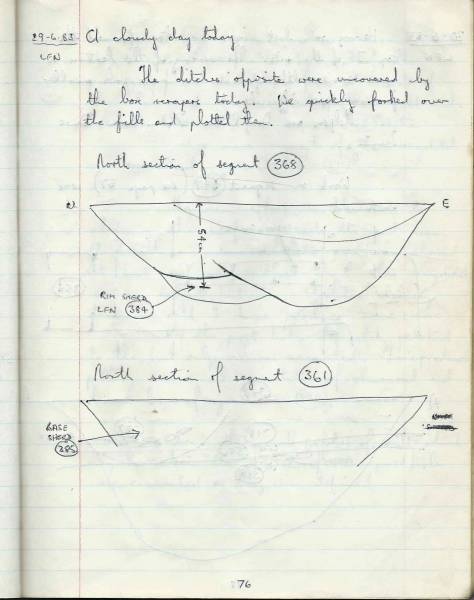 29-6-83 A cloudy day today
LFN
The ditches opposite were uncovered by
the box scrapers today. I've quickly forked over
the fills and plotted them.
North section of segment 368
W
E
54cm
RIM SHERD
LFN 384
North section of segment 361
BASE
SHERD
385
76